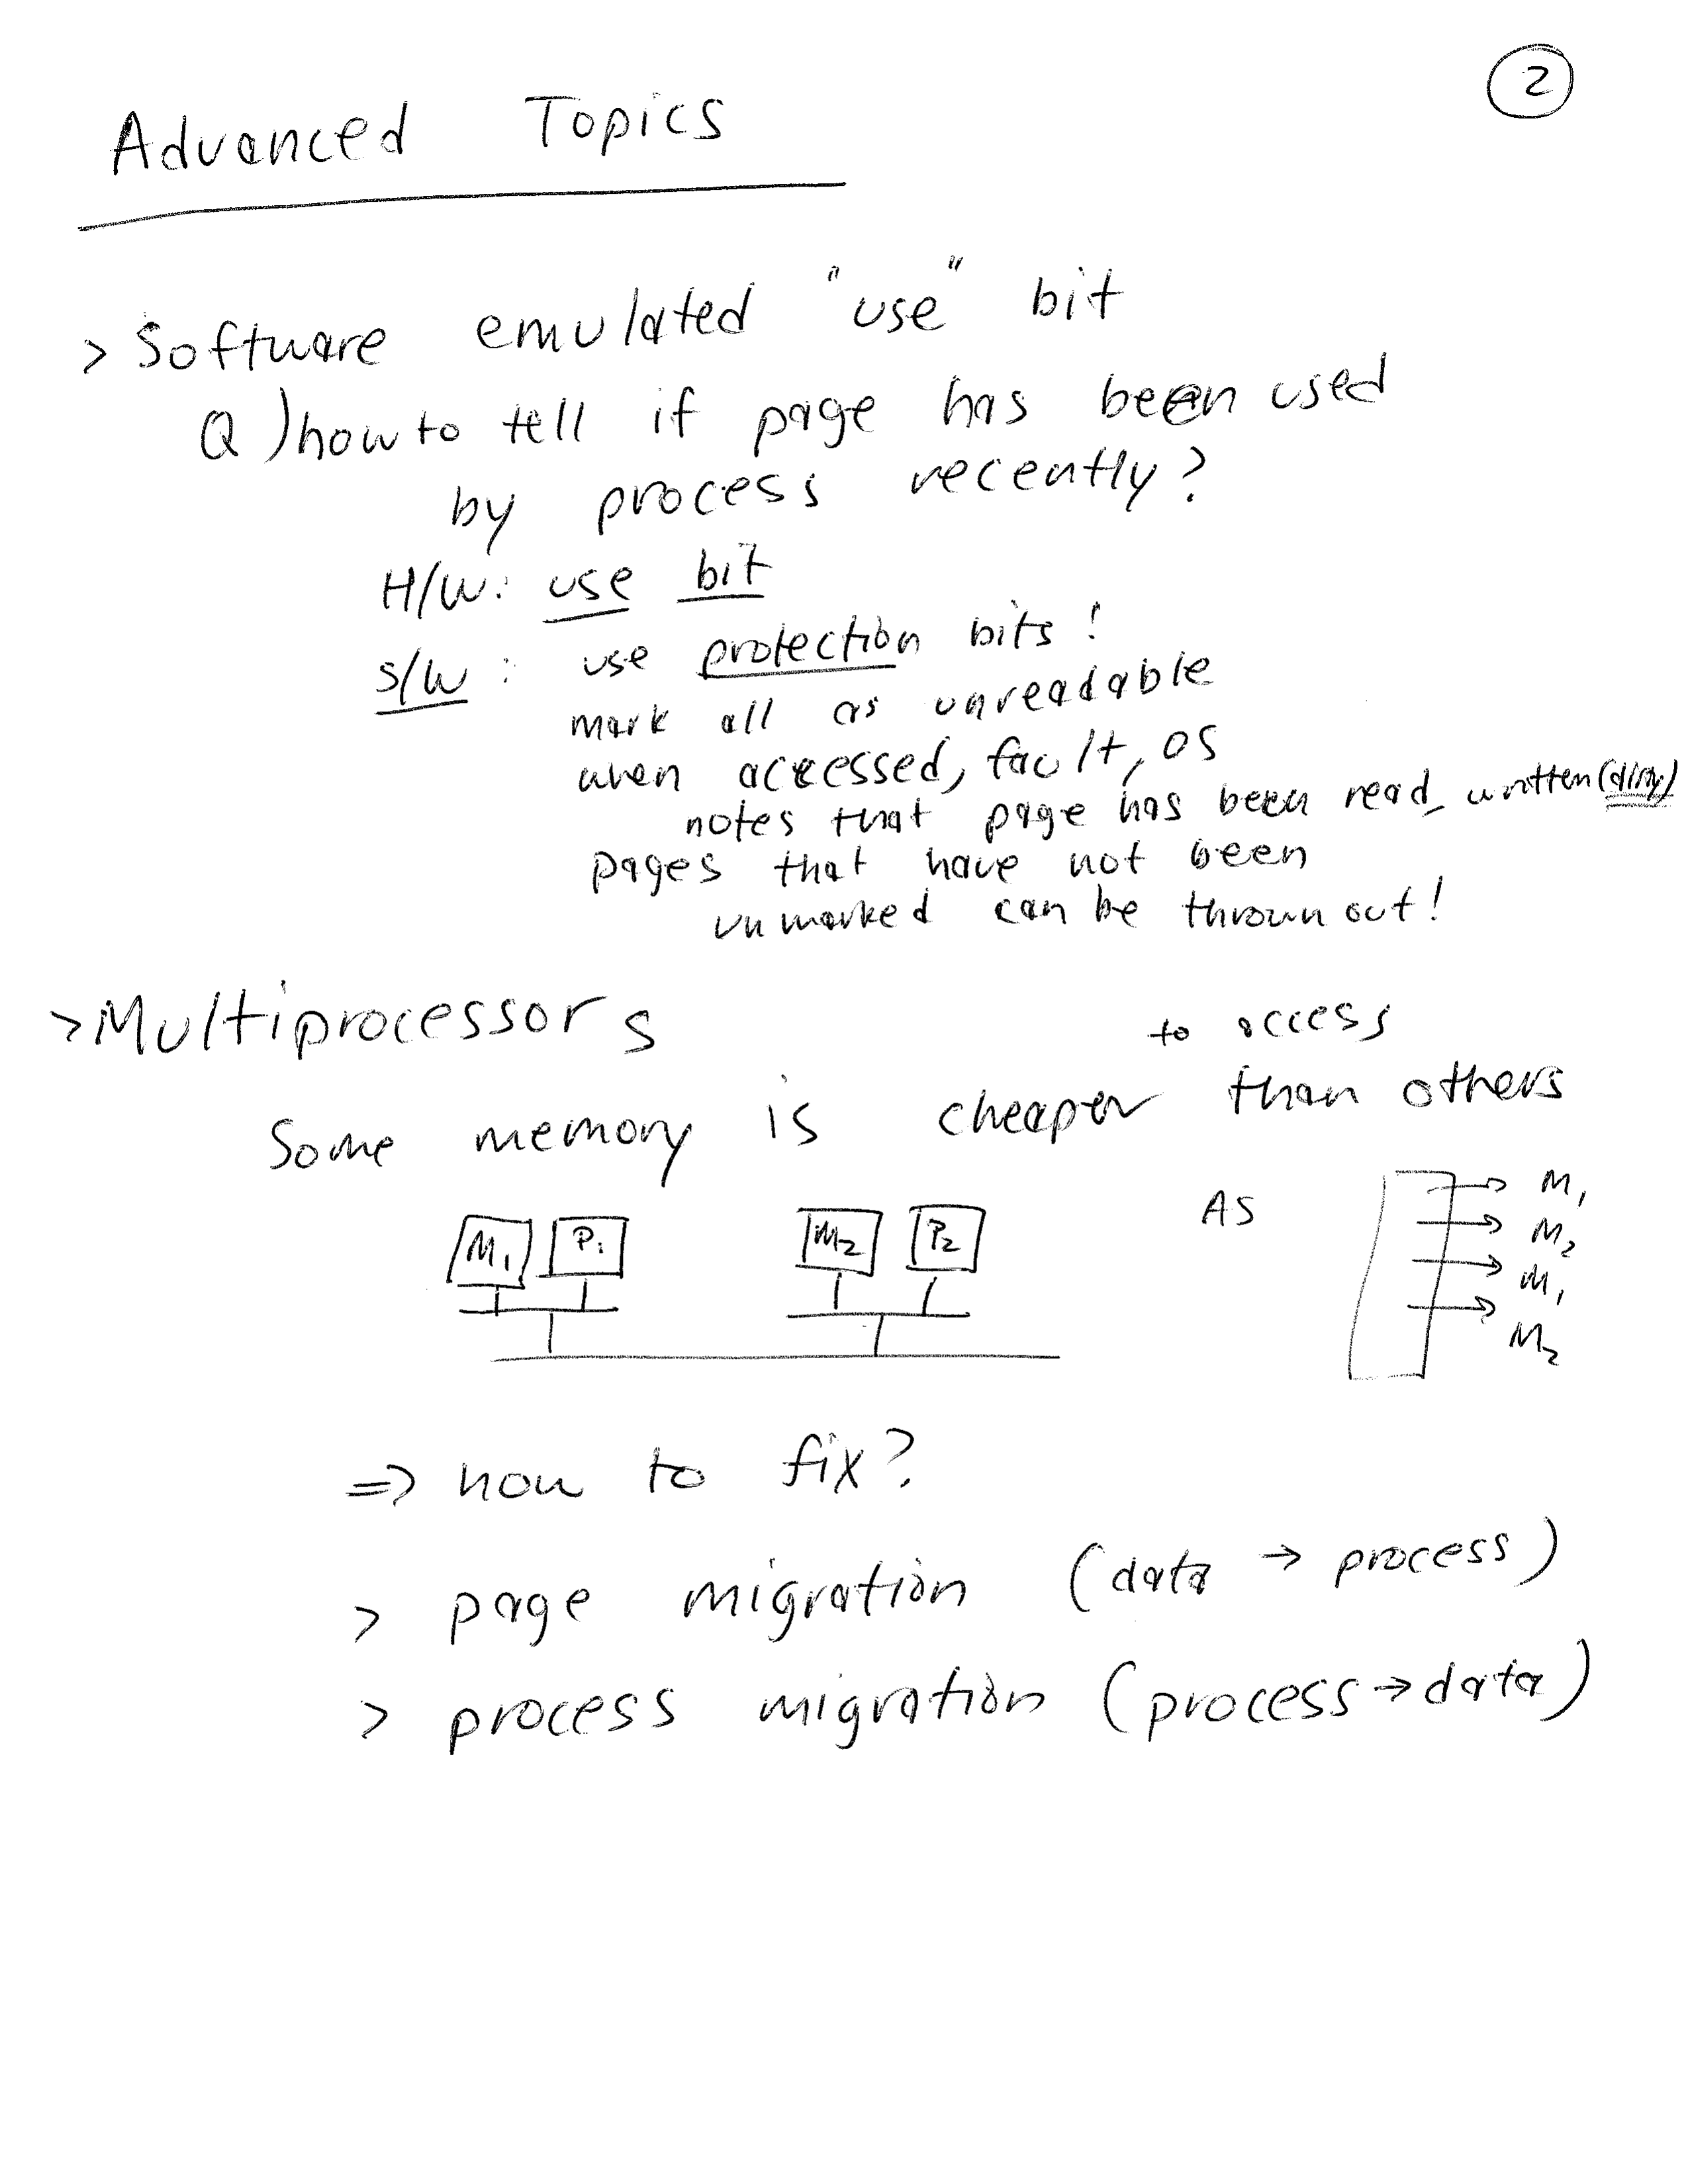 2
Advanced Topics
> Software emulated "use" bit
Q) how to tell if page has been used
by process recently?
H/W: use bit
S/W: use protection bits!
mark all as unreadable
when accessed, fault, OS
notes that page has been read, written (dirty)
pages that have not been
unmarked can be thrown out!
> Multiprocessors
to access
Some memory is cheaper than others
M1 P1 M2 P2 AS
M1
M2
M1
M2
=> how to fix?
> page migration (data → process)
> process migration (process → data)